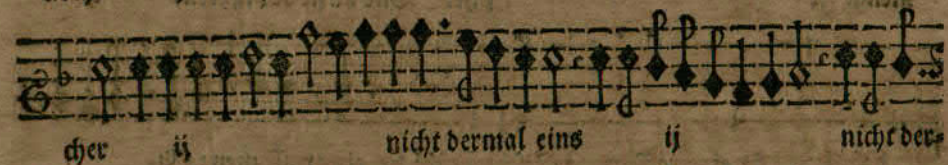 cher ij nicht dermal eins ij nicht der=